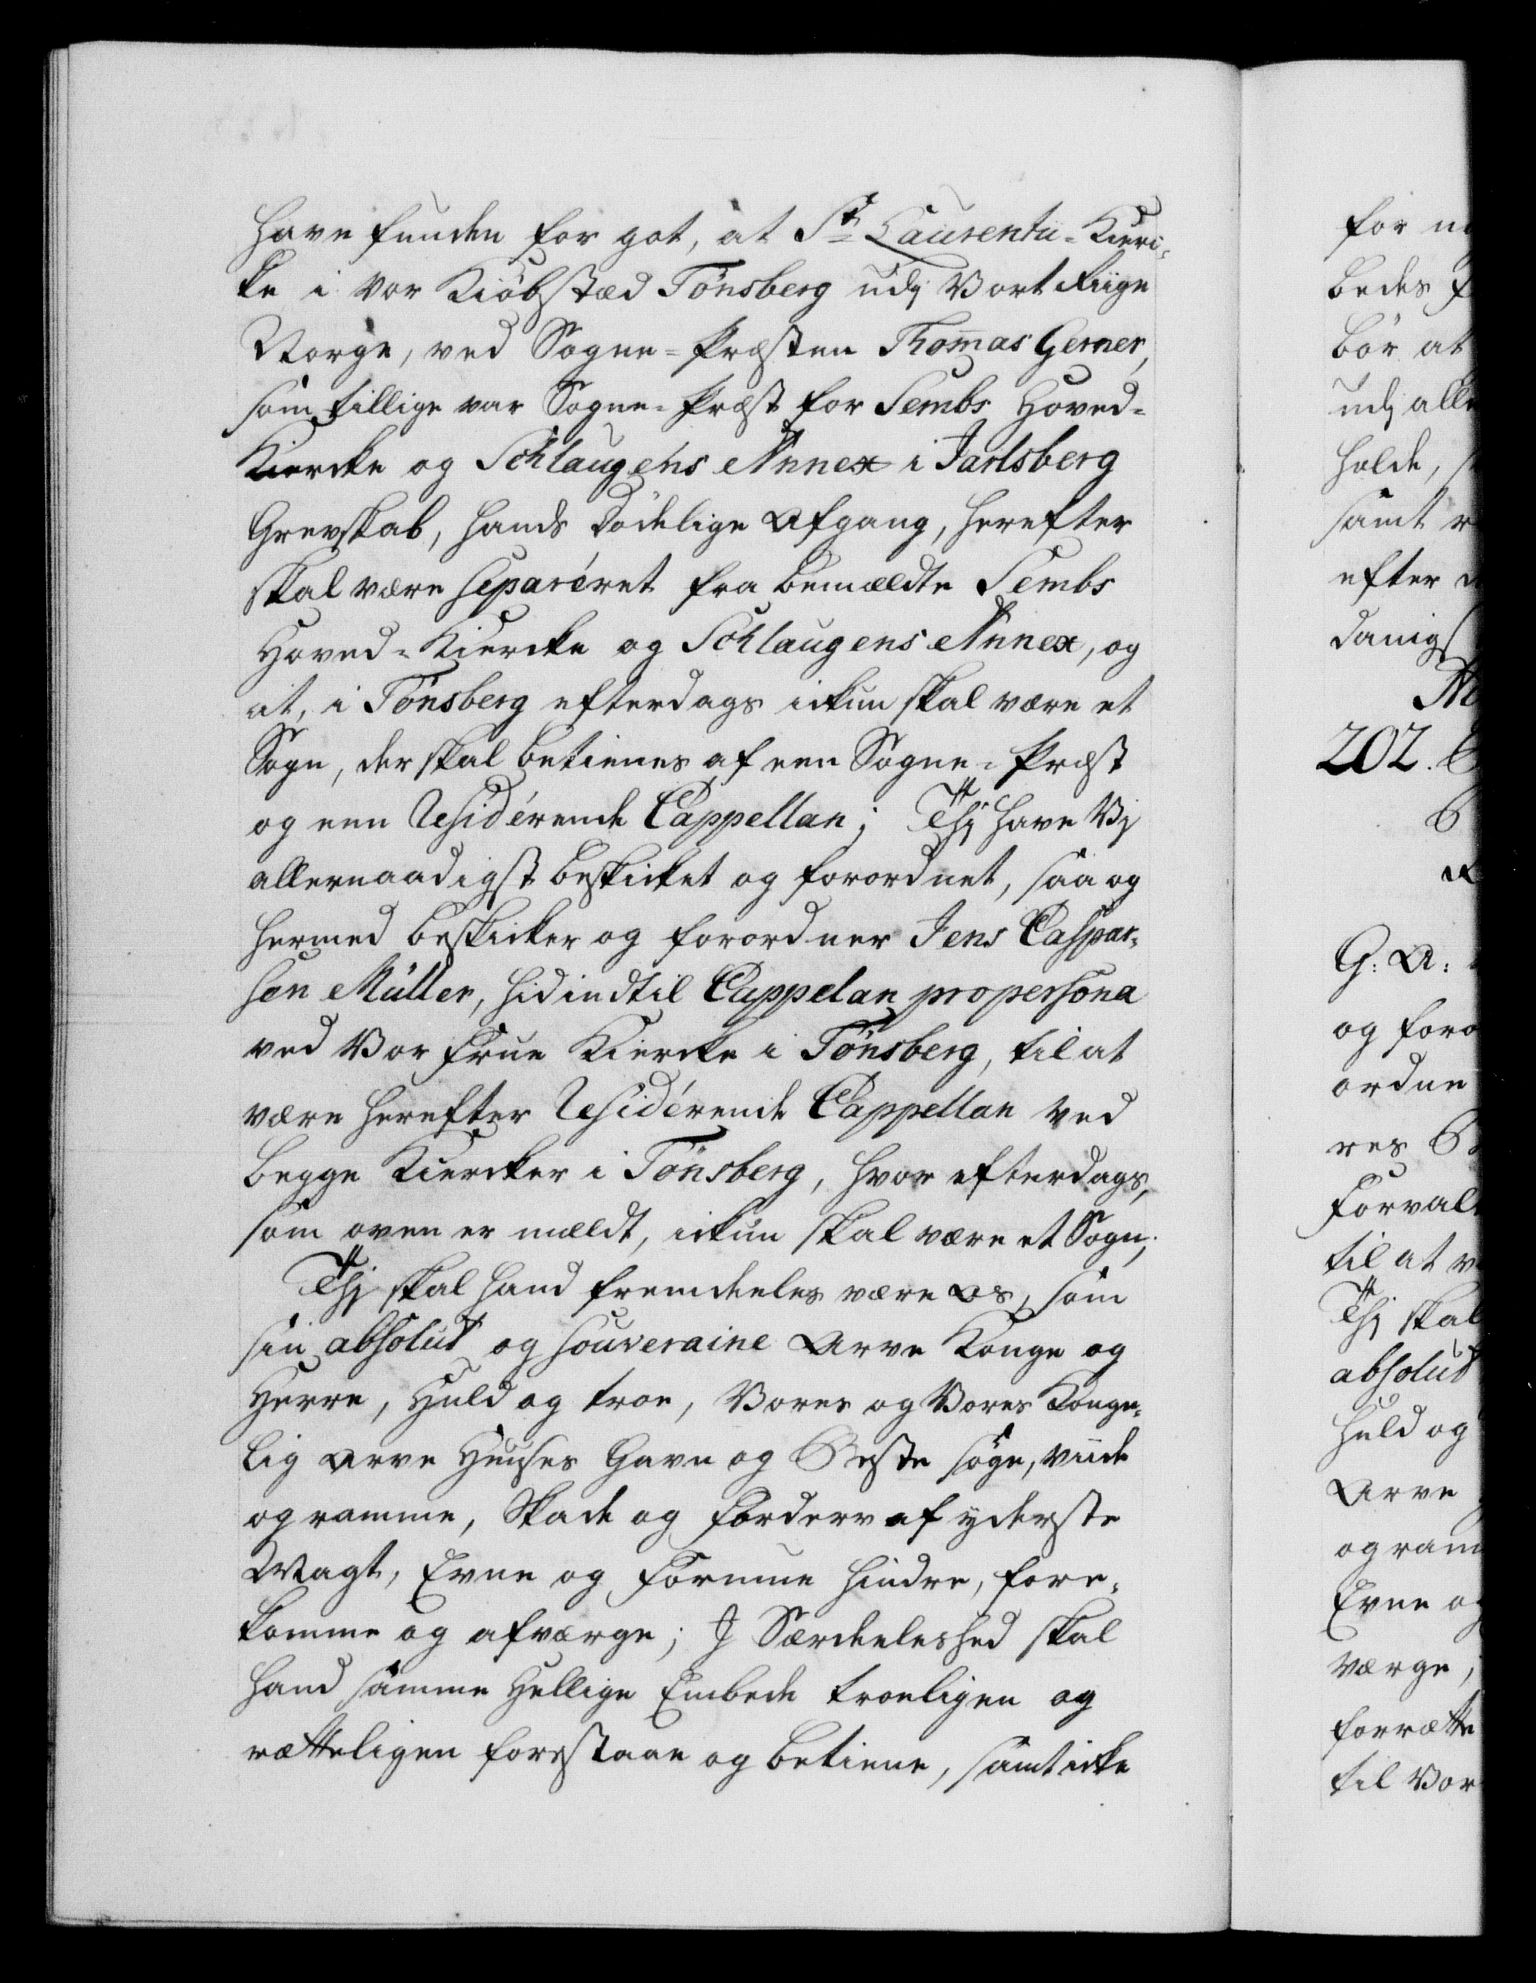 have funden for got, at St Laurentii-Kier-
ke i vor Kiöbsteed Tönsberg udj Vort Riige
Norge, ved Sogne-Præsten Thom̄as Gerner,
som tillige var Sogne-Præst for Sembs Hoved-
Kiercke og Schlaugens Annex i Jarlsberg
Grevskab, hands dödelige Afgang, herefter
skal være separéret fra bemældte Sembs
Hoved-Kiercke og Schlaugens Annex, og
at, i Tönsberg efterdags ickun skal være et
Sogn, der skal betienes af een Sogne-Præst
og een Residérende Cappellan; Thj have Vj
allernaadigst beskicket og forordnet, saa og
hermed beskicker og forordner Jens Caspar-
sen Müller, hidindtil Cappelan pro persona
ved Vor Frue Kiercke i Tönsberg, til at
være herefter Residérende Cappellan ved
begge Kiercker i Tönsberg, hvor efterdags,
som oven er mældt, ickun skal være et Sogn;
Thj skal hand fremdeeles være Os, som
sin absolut og souveraine Arve Konge og
Herre, Huld og troe, Vores og Vores Konge-
lig Arve Huuses Gavn og Beste söge, viide
og ramme, Skade og Forderv af yderste
Magt, Evne og Formue hindre, fore-
komme og afværge; J Særdeeleshed skal
hand samme Hellige Embede troeligen og
rætteligen forestaae og betiene, samt icke
for
bedes
bör at
udj alle
holde,
samt
efter
danig
202.
G: A:
og foro
ordne
res
Forval
til at
Thj skal
absolut
huld og
Arve
og ram
Evne og
værge,
forrætte
til Vor